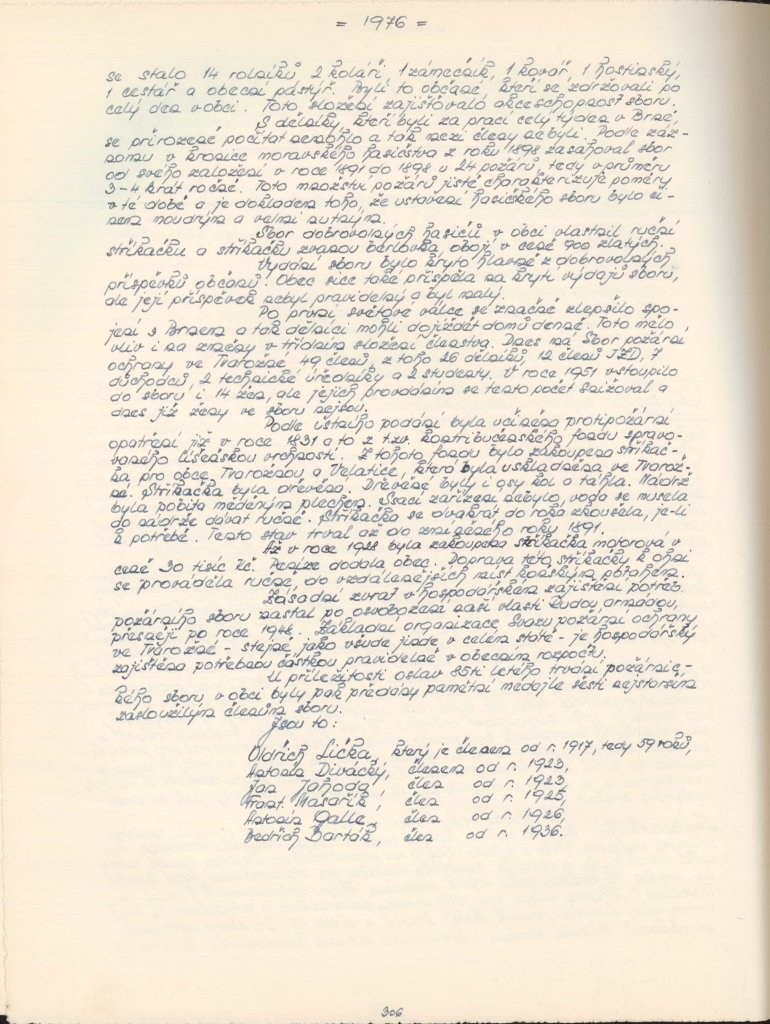 = 1976 =
se stalo 14 rolníků, 2 koláři, 1 zámečník, 1 kovář, 1 hostinský,
1 cestář a obecní pastýř. Byli to občané, kteří se zdržovali po
celý den v obci. Toto složení zajišťovalo akceschopnost sboru.
S dělníky, kteří byli za prací celý týden v Brně,
se přirozeně počítat nemohlo a tak mezi členy nebyli. Podle záz-
namu v kronice moravského hasičstva z roku 1898 zasahoval sbor
od svého založení v roce 1891 do 1898 u 24 požárů, tedy v průměru
3-4 krát ročně. Toto množství požárů jistě charakterizuje poměry
v té době a je dokladem toho, že ustavení hasičského sboru bylo či-
nem moudrým a velmi nutným.
Sbor dobrovolných hasičů v obci vlastnil ruční
stříkačku a stříkačku zvanou berlovka, obojí v ceně 900 zlatých.
Vydání sboru bylo kryto hlavně z dobrovolných
příspěvků občanů. Obec sice také přispěla na krytí výdajů sboru,
ale její příspěvek nebyl pravidelný a byl malý.
Po první světové válce se značně zlepšilo spo-
jení s Brnem a tak dělníci mohli dojíždět domů denně. Toto mělo
vliv i na změny v třídním složení členstva. Dnes má Sbor požární
ochrany ve Tvarožné 49 členů, z toho 26 dělníků, 12 členů JZD, 7
důchodců, 2 technické úředníky a 2 studenty. V roce 1951 vstoupilo
do sboru i 14 žen, ale jejich provdáním se tento počet snižoval a
dnes již ženy ve sboru nejsou.
Podle ústního podání byla učiněna protipožární
opatření již v roce 1831 a to z t.zv. kontribučenského fondu spravo-
vaného líšeňskou vrchností. Z tohoto fondu byla zakoupena stříkač-
ka pro obce Tvarožnou a Velatice, která byla uskladněna ve Tvarož-
né. Stříkačka byla dřevěná. Dřevěné byly i osy kol a táhla. Nádrž
byla pobita měděným plechem. Ssací zařízení nebylo, voda se musela
do nádrže dávat ručně. Stříkačka se dvakrát do roka zkoušela, je-li
k potřebě. Tento stav trval až do zmíněného roku 1891.
Až v roce 1928 byla zakoupena stříkačka motorová v
ceně 30 tisíc Kč. Peníze dodala obec. Doprava této stříkačky k ohni
se prováděla ručně, do vzdálenějších míst koňským potahem.
Zásadní zvrat v hospodářském zajištění potřeb
požárního sboru nastal po osvobození naší vlasti Rudou armádou,
přesněji po roce 1948. Základní organizace Svazu požární ochrany
ve Tvarožné - stejně jako všude jinde v celém státě - je hospodářsky
zajištěna potřebnou částkou pravidelně v obecním rozpočtu.
U příležitosti oslav 85ti letého trvání požárnic-
kého sboru v obci byly pak předány pamětní medajle šesti nejstarším
zásloužilým členům sboru.
Jsou to:
Oldřich Lička, který je členem od r. 1917, tedy 59 roků,
Antonín Divácký, členem od r. 1923,
Jan Jahoda, člen od r. 1923,
Frant. Masařík, člen od r. 1925,
Antonín Galle, člen od r. 1926,
Bedřich Barták, člen od r. 1936.
306